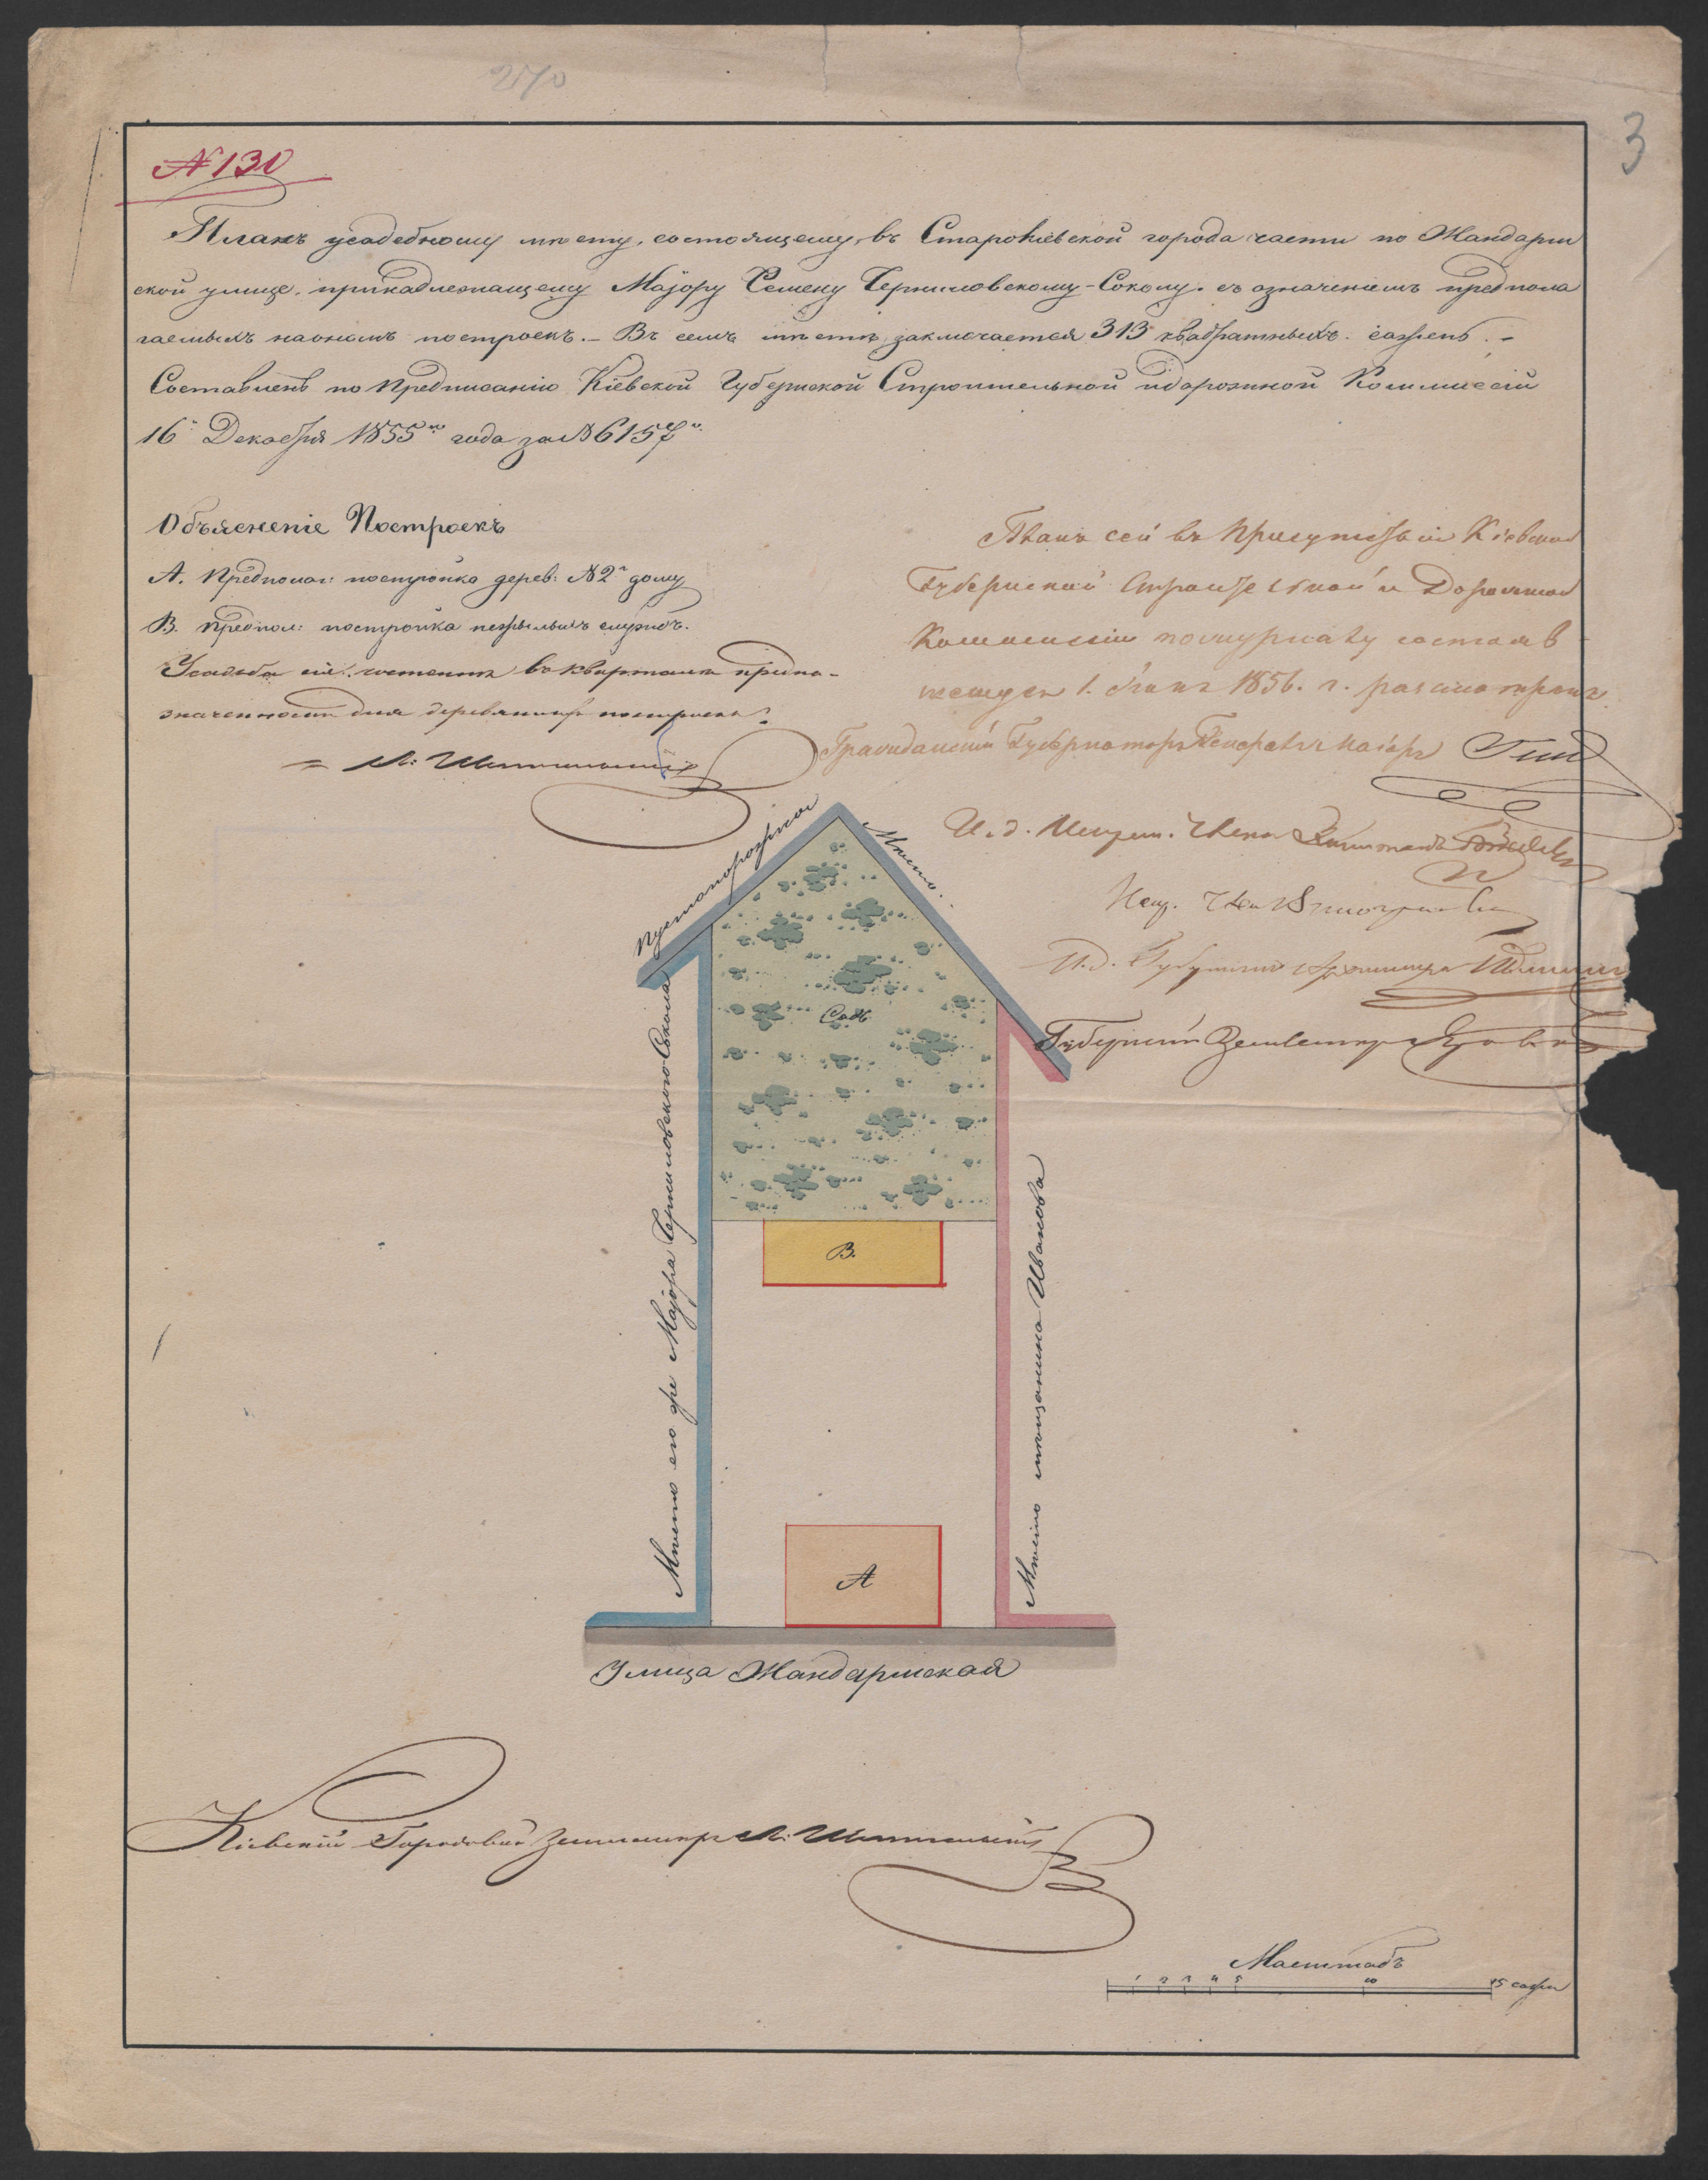 270
3
№ 130
Планъ усадебному мѣсту, состоящему въ Старокіевской города части по Жандарм
ской улицѣ, принадлежащему Маіору Семену Черниловскому-Соколу. съ означеніемъ предпола
гаемыхъ на ономъ построекъ. – Въ семъ мѣстѣ заключается 313 квадратныхъ. сажень. –
Составленъ по предписанію Кіевской Губернской Строительной и дорожной Коммиссіи
16 Декабря 1855го года за № 6157м
Объясненіе Построекъ
А. Предполог: постройка дерев: № 2го дому
В. Предпол: постройка нежилыхъ службъ.
Усадьба сія состоитъ въ кварталѣ предна-
значенномъ для деревянныхъ построекъ.
Планъ сей въ присутствіи Кіевской
Губернской Строительной и Дорожной
Коммиссіи по журналу состояв
шемуся 1. 1856. г. разсмотренъ.
Гражданскій Губернаторъ Генералъ Маіоръ
И. д. Члена
И. д. Губернскаго Архитектора
Губернскій Землемеръ
Пустопорожнее
Мѣсто.
Садъ
Мѣсто его же Маіора Черниловского-Сокола
Мѣсто мѣщанина Иванова
В.
А
Улица Жандармская
Кіевскій Городовой Землемеръ
Масштабъ
1 2 3 4 5 10 15 саж